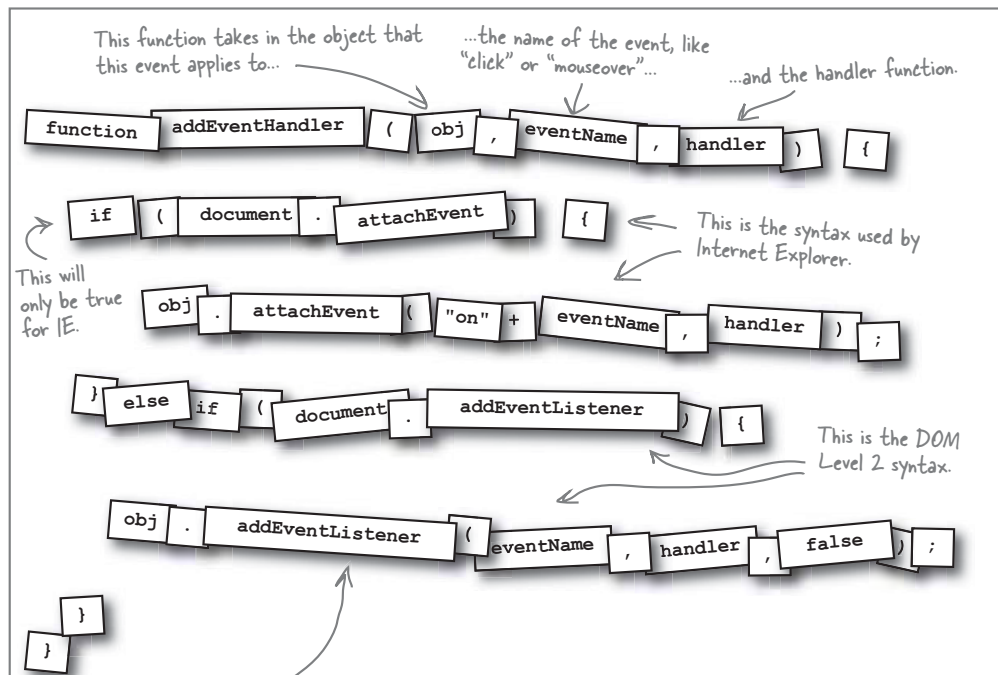 This function takes in the object that
this event applies to...
...the name of the event, like
"click" or "mouseover"...
...and the handler function.
function addEventHandler ( obj , eventName , handler ) {
if ( document . attachEvent ) {
This is the syntax used by
Internet Explorer.
This will
only be true
for IE.
obj . attachEvent ( "on" + eventName , handler ) ;
} else if ( document . addEventListener ) {
This is the DOM
Level 2 syntax.
obj . addEventListener ( eventName , handler , false ) ;
}
}